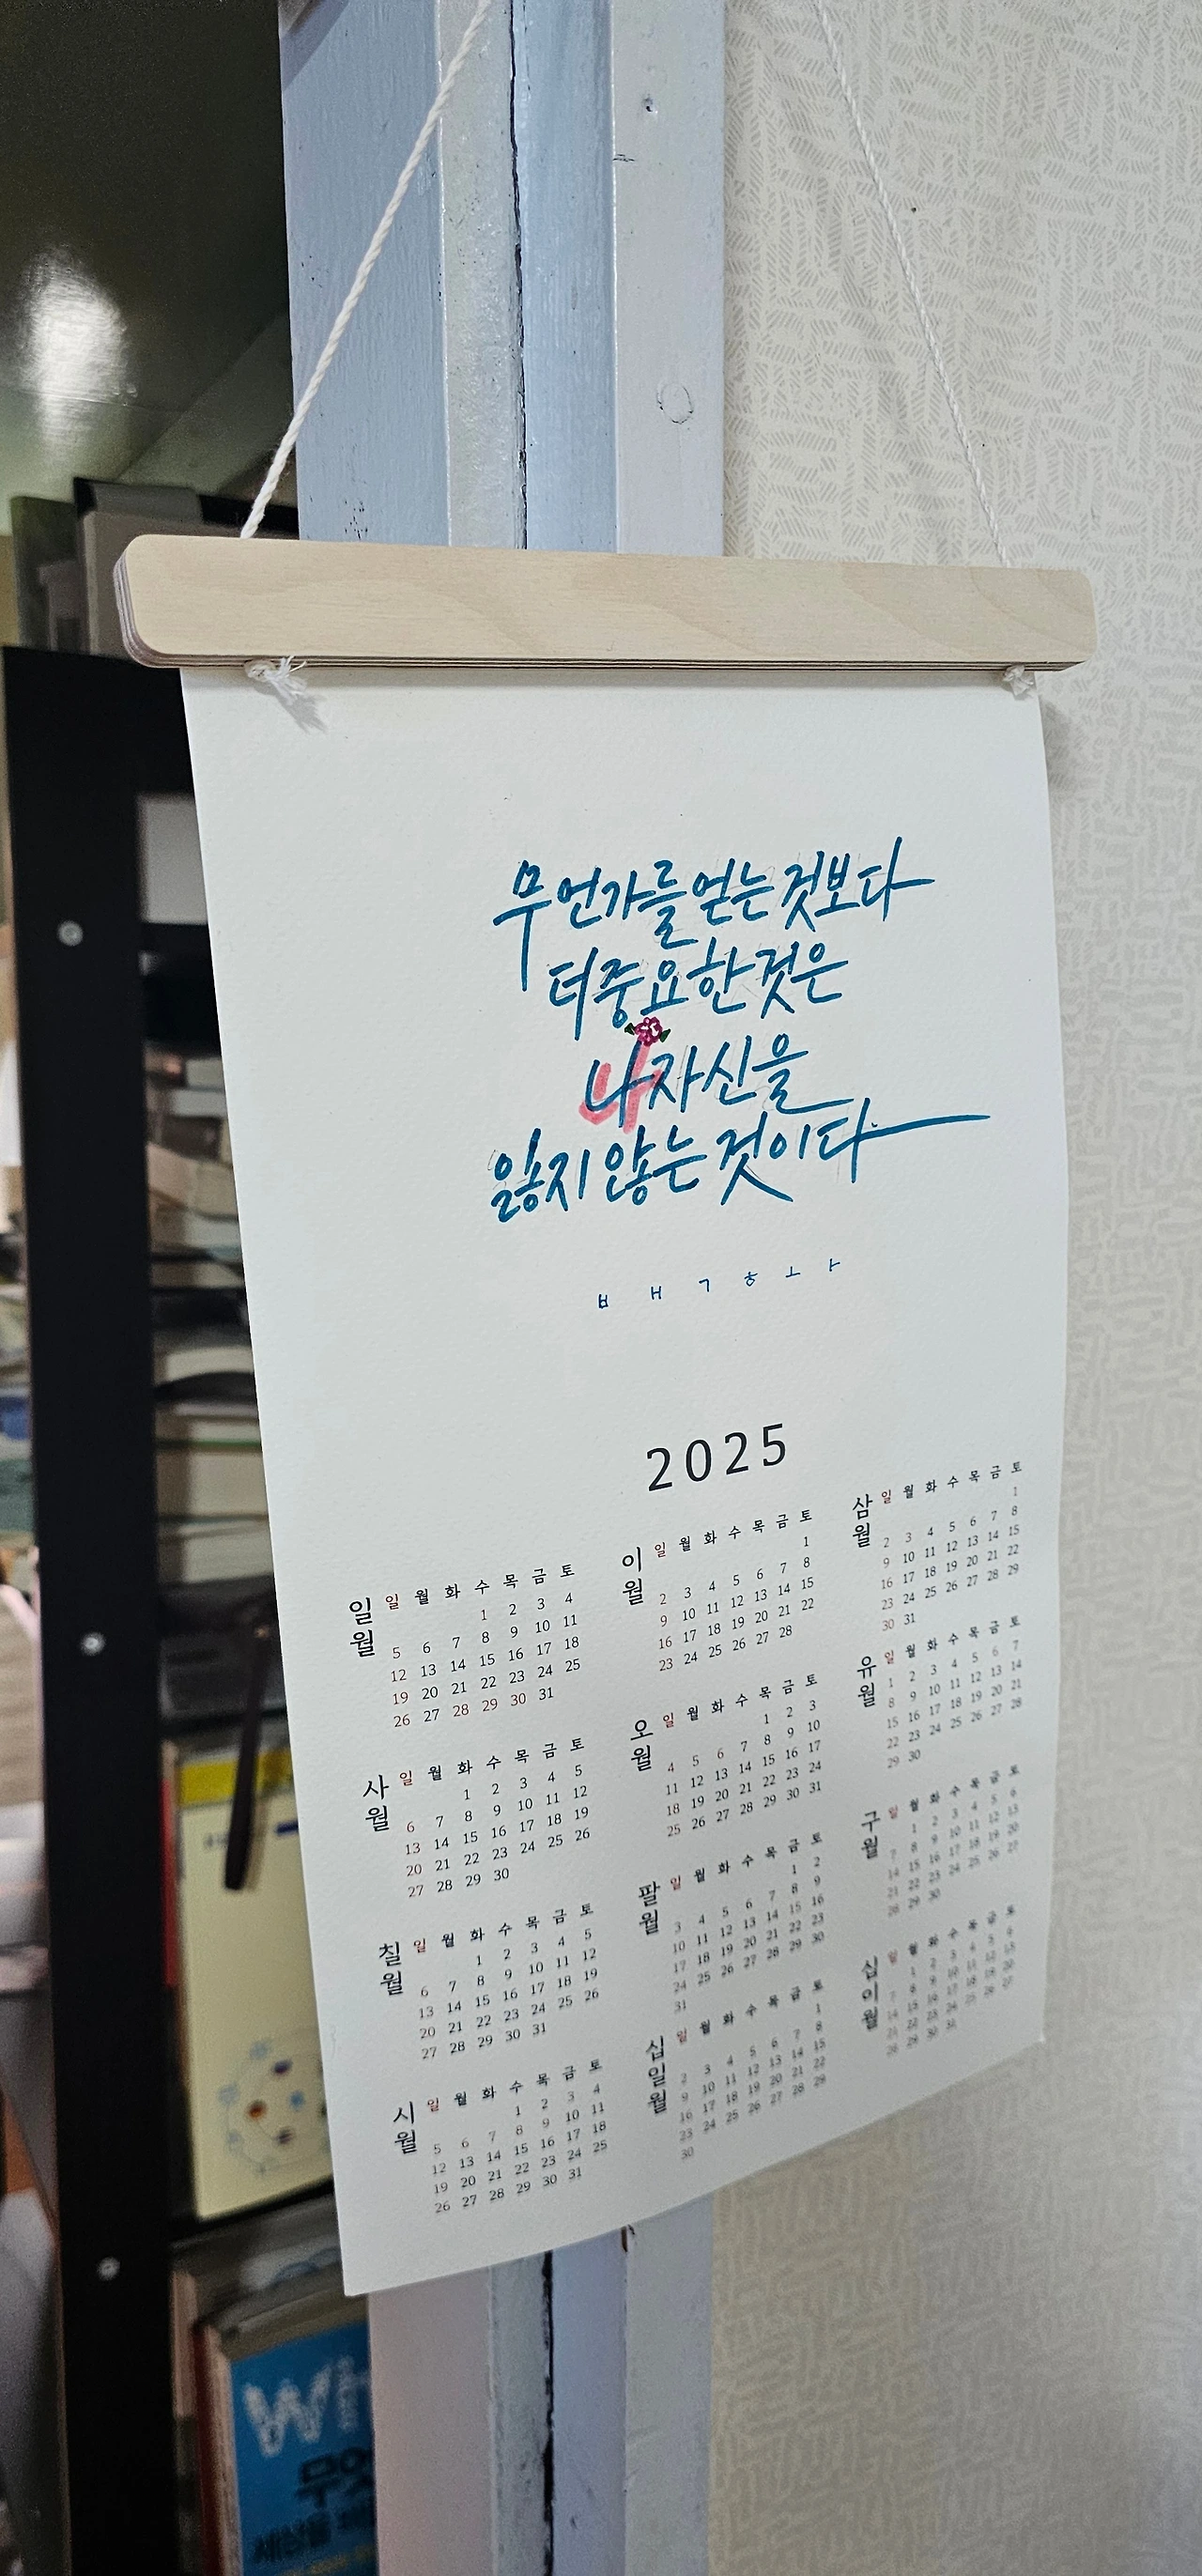 무언가를 얻는 것보다
더 중요한 것은
나 자신을
잃지 않는 것이다
ㅂ ㅐ ㄱ ㅎ ㅗ ㅏ
2025
일월
일 월 화 수 목 금 토
1 2 3 4
5 6 7 8 9 10 11
12 13 14 15 16 17 18
19 20 21 22 23 24 25
26 27 28 29 30 31
이월
일 월 화 수 목 금 토
1
2 3 4 5 6 7 8
9 10 11 12 13 14 15
16 17 18 19 20 21 22
23 24 25 26 27 28
삼월
일 월 화 수 목 금 토
1
2 3 4 5 6 7 8
9 10 11 12 13 14 15
16 17 18 19 20 21 22
23 24 25 26 27 28 29
30 31
사월
일 월 화 수 목 금 토
1 2 3 4 5
6 7 8 9 10 11 12
13 14 15 16 17 18 19
20 21 22 23 24 25 26
27 28 29 30
오월
일 월 화 수 목 금 토
1 2 3
4 5 6 7 8 9 10
11 12 13 14 15 16 17
18 19 20 21 22 23 24
25 26 27 28 29 30 31
유월
일 월 화 수 목 금 토
1 2 3 4 5 6 7
8 9 10 11 12 13 14
15 16 17 18 19 20 21
22 23 24 25 26 27 28
29 30
칠월
일 월 화 수 목 금 토
1 2 3 4 5
6 7 8 9 10 11 12
13 14 15 16 17 18 19
20 21 22 23 24 25 26
27 28 29 30 31
팔월
일 월 화 수 목 금 토
1 2
3 4 5 6 7 8 9
10 11 12 13 14 15 16
17 18 19 20 21 22 23
24 25 26 27 28 29 30
31
구월
일 월 화 수 목 금 토
1 2 3 4 5 6
7 8 9 10 11 12 13
14 15 16 17 18 19 20
21 22 23 24 25 26 27
28 29 30
시월
일 월 화 수 목 금 토
1 2 3 4
5 6 7 8 9 10 11
12 13 14 15 16 17 18
19 20 21 22 23 24 25
26 27 28 29 30 31
십일월
일 월 화 수 목 금 토
1
2 3 4 5 6 7 8
9 10 11 12 13 14 15
16 17 18 19 20 21 22
23 24 25 26 27 28 29
30
십이월
일 월 화 수 목 금 토
1 2 3 4 5 6
7 8 9 10 11 12 13
14 15 16 17 18 19 20
21 22 23 24 25 26 27
28 29 30 31